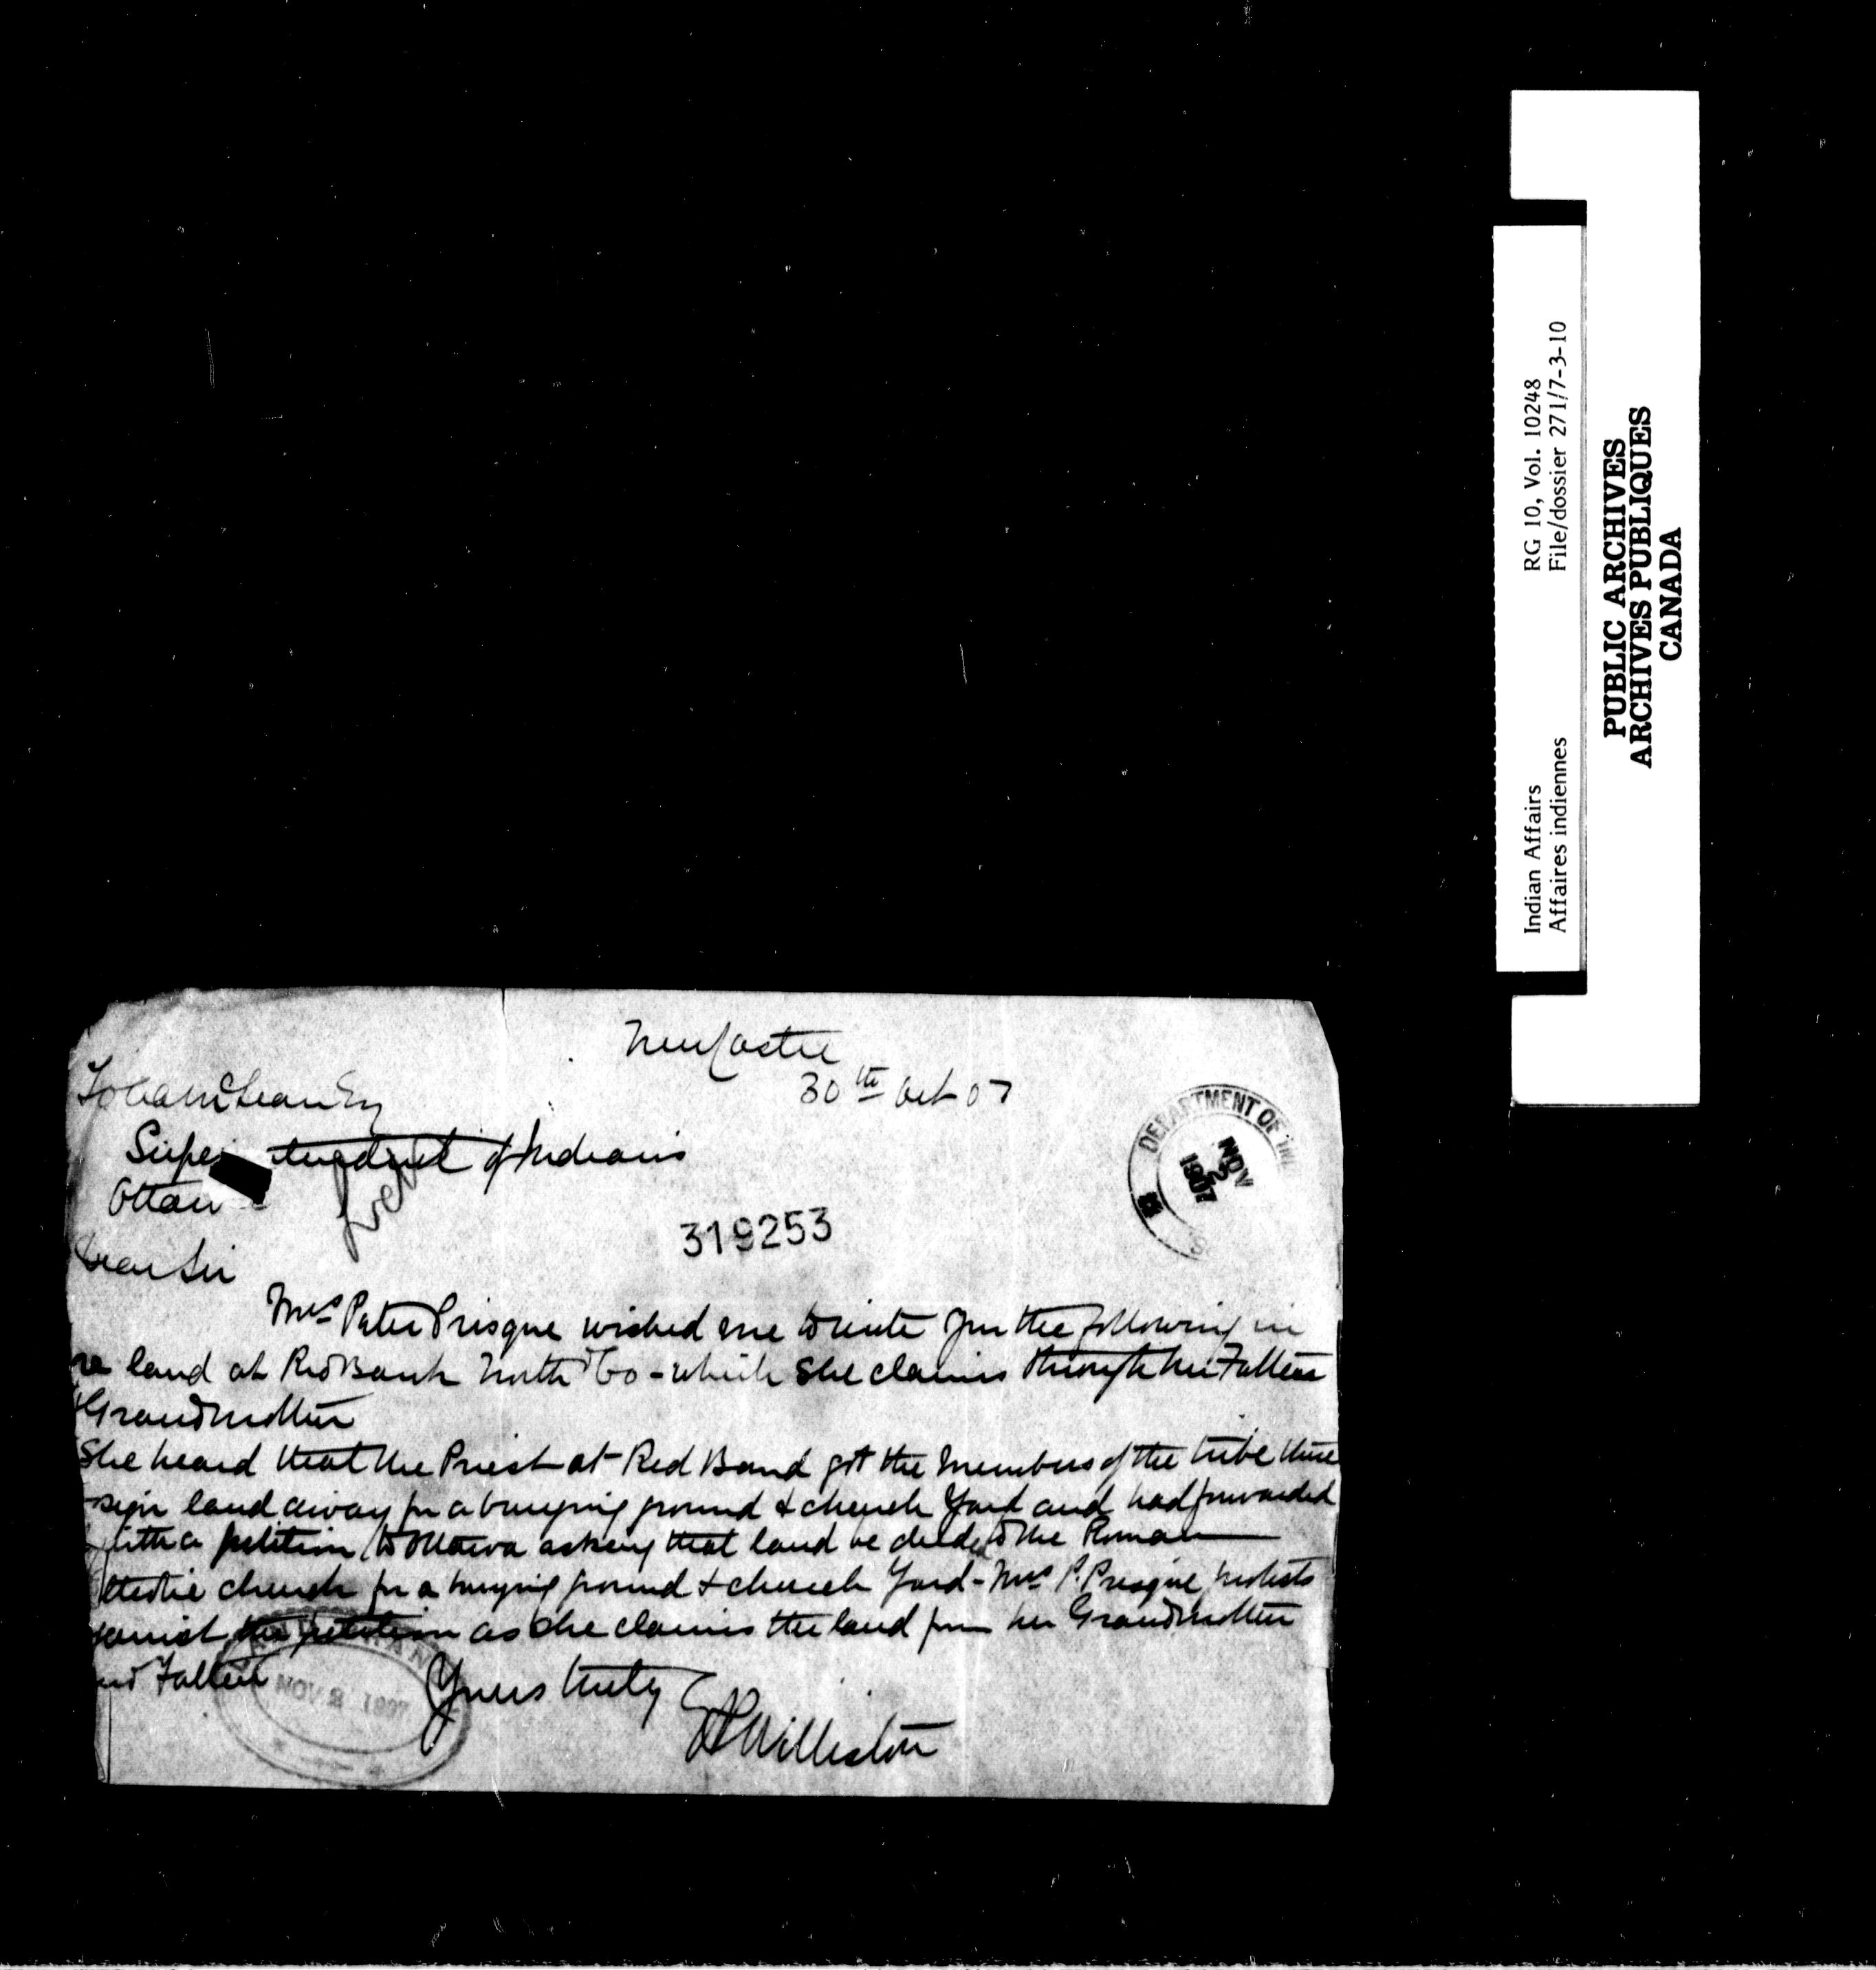 NewCastle
30th Oct 07
McLean Esq
Superintendent of Indians
Ottaw
Dear Sir
319253
DEPARTMENT OF IND
NOV 2 1907
Mrs Peter Prisque wished me to write you the following in
re land at RedBank North'd Co - which she claims through her Father
& Grandmother
She heard that the Priest at Red Band got the members of the tribe there
sign land away for a burying ground & church Yard and had forwarded
with a petition to Ottawa asking that land be deeded to the Roman
church for a burying ground & church Yard - Mrs P. Presque protests
against the petition as she claims the land from her Grandmother
and Father
NOV 2 1907
Yours truly
Williston
Indian Affairs RG 10, Vol. 10248
Affaires indiennes File/dossier 271/7-3-10
PUBLIC ARCHIVES
ARCHIVES PUBLIQUES
CANADA